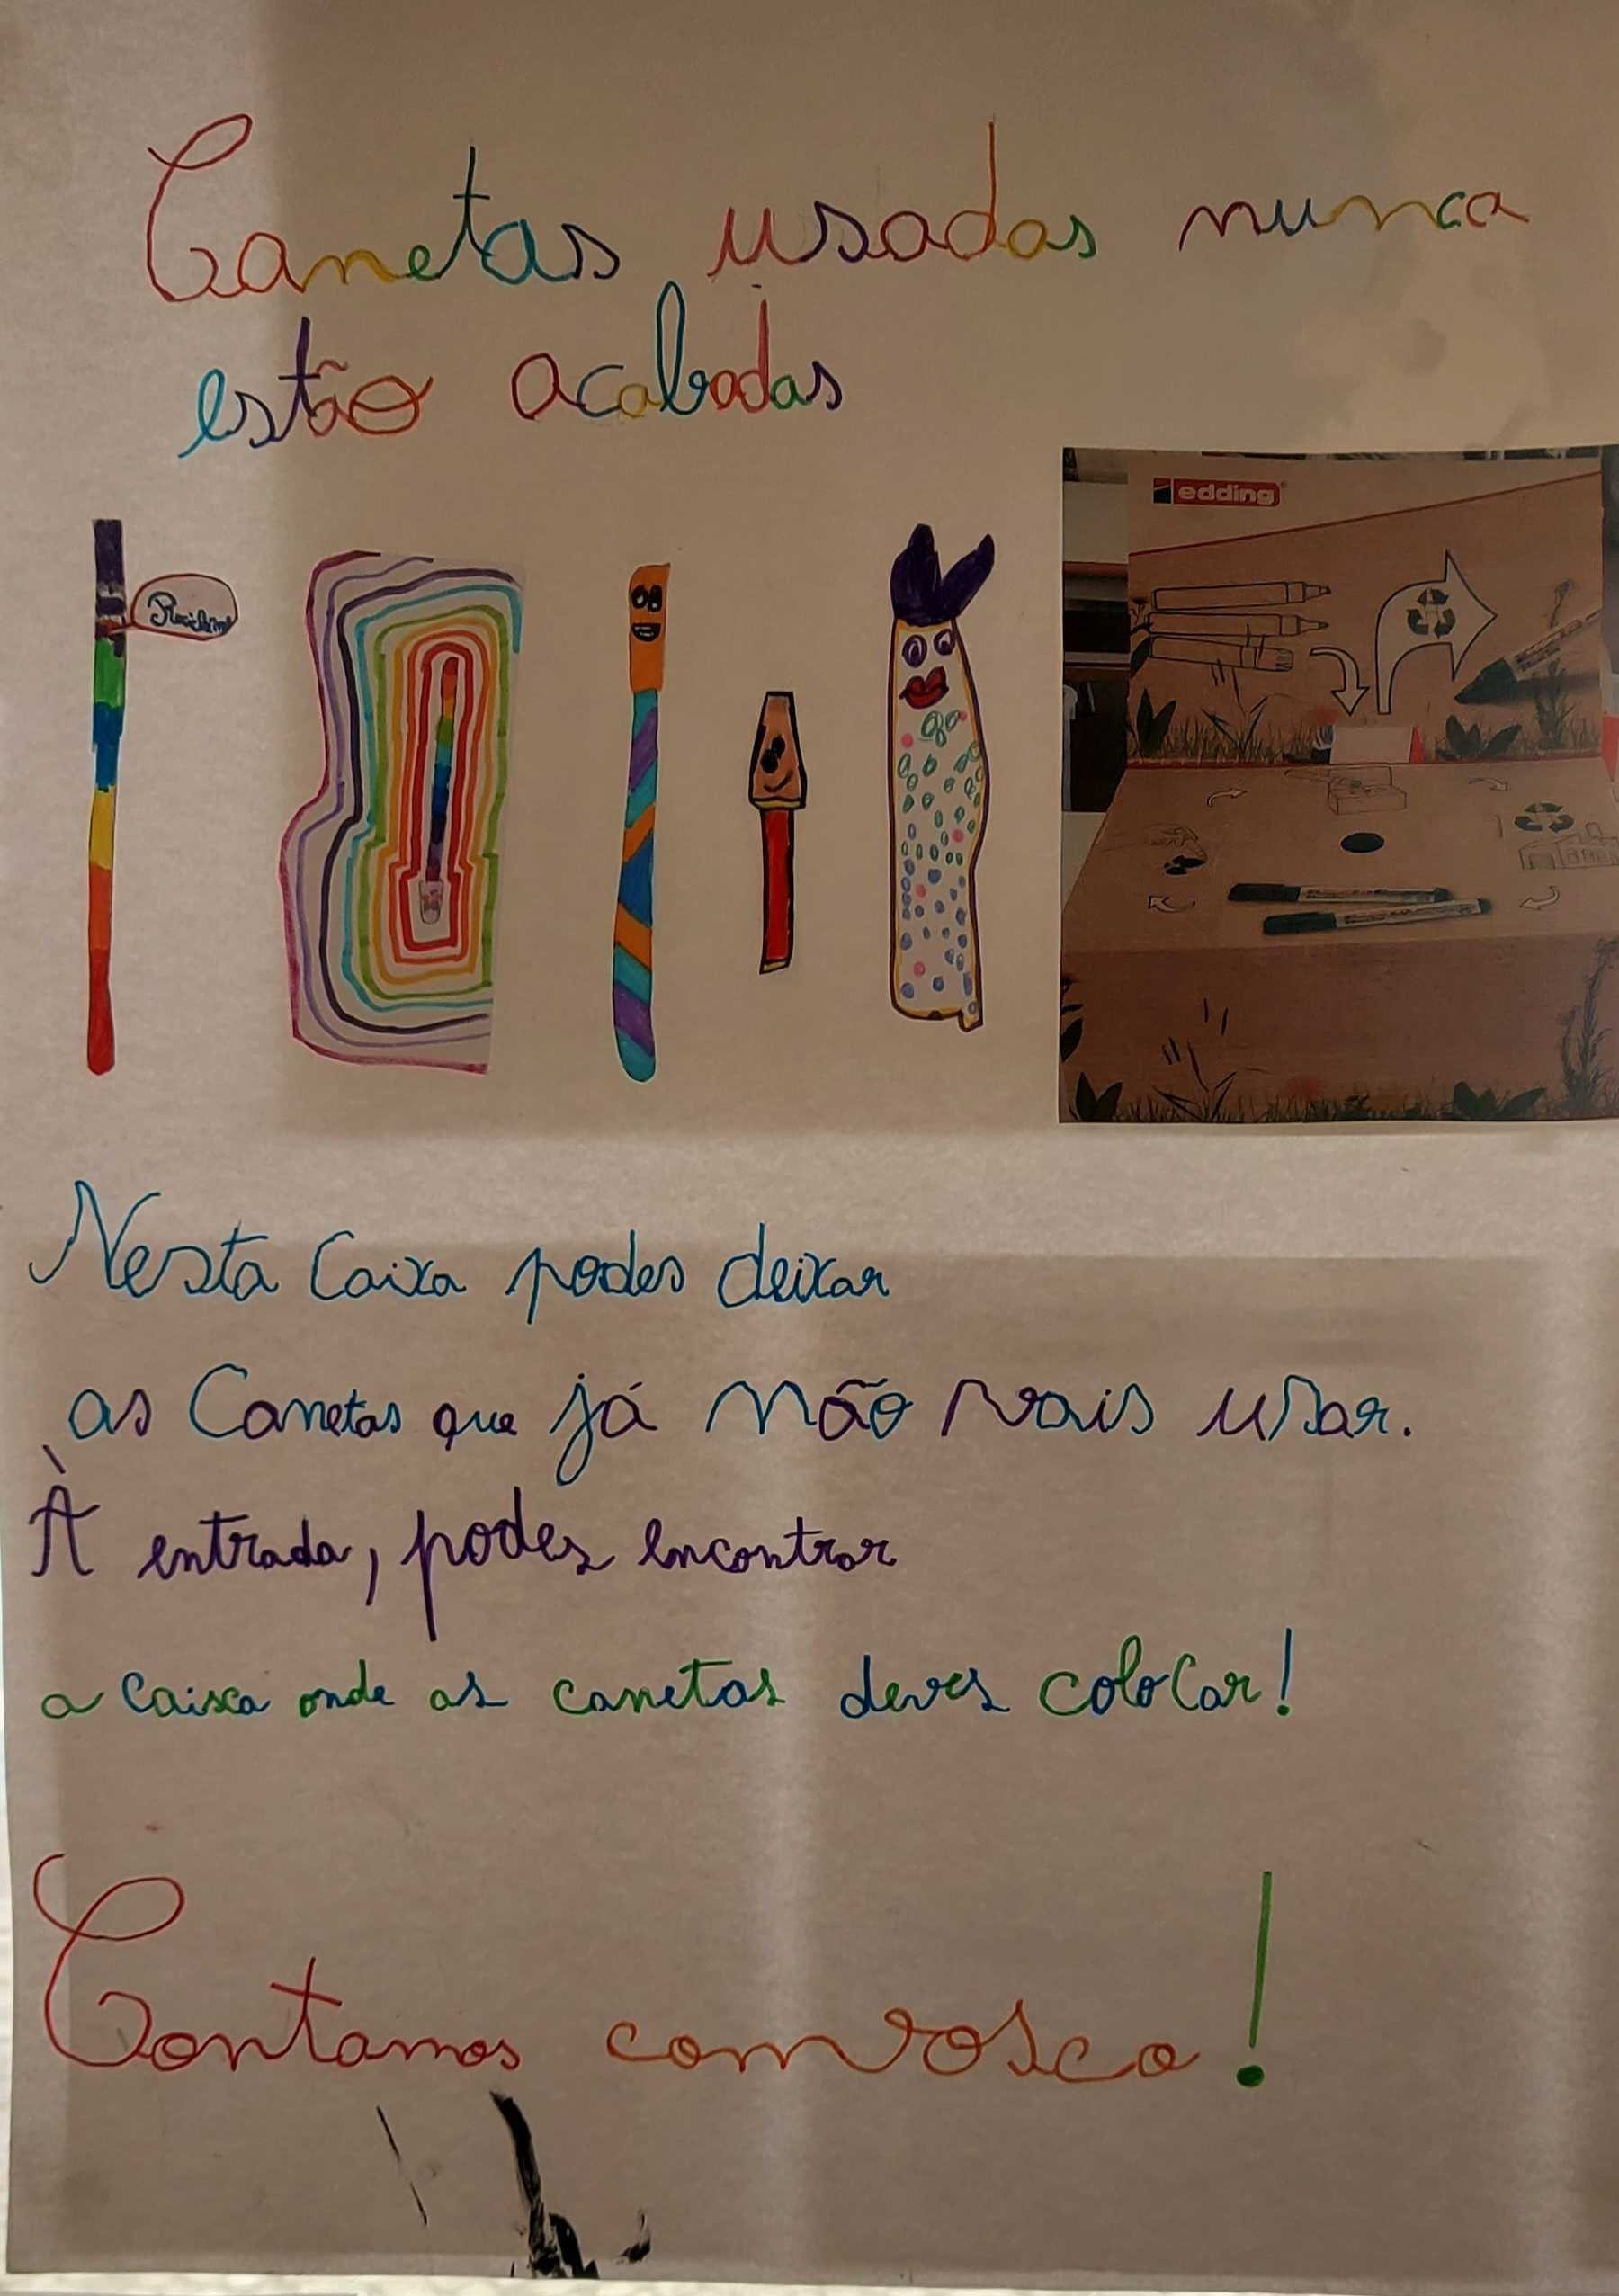 Canetas usadas nunca
estão acabadas
edding
Nesta Caixa podes deixar
as Canetas que já não vais usar.
À entrada, podes encontrar
a caixa onde as canetas deves colocar!
Contamos convosco!